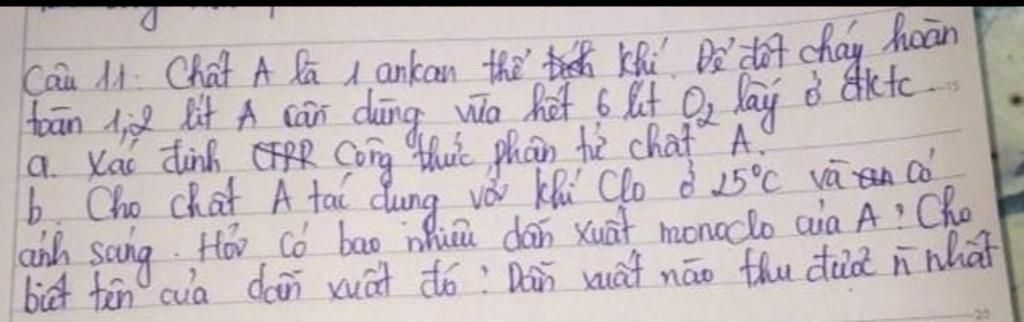 Câu 11: Chất A là 1 ankan thể khí. Để đốt cháy hoàn
toàn 1,2 lít A cần dùng vừa hết 6 lít O2 lấy ở đktc.
a. Xác định Công thức phân tử chất A.
b. Cho chất A tác dụng với khí Clo ở 25°C và có
ánh sáng. Hỏi có bao nhiêu dẫn xuất monoclo của A? Cho
biết tên của dẫn xuất đó? Dẫn xuất nào thu được n nhất